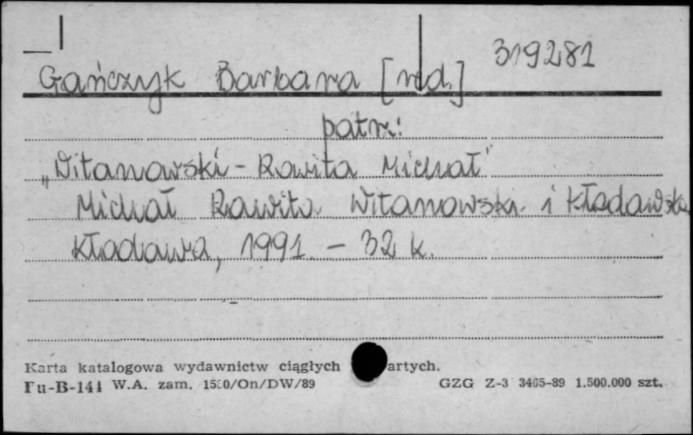 319281
Gańczyk Barbara [red.]
patrz:
„Witanowski - Rawita Michał"
Michał Rawita Witanowski i Kłodawska
Kłodawa, 1991. - 32 k.
Karta katalogowa wydawnictw ciągłych artych.
Pu-B-141 W.A. zam. 1580/On/DW/89 GZG Z-3 3465-89 1.500.000 szt.